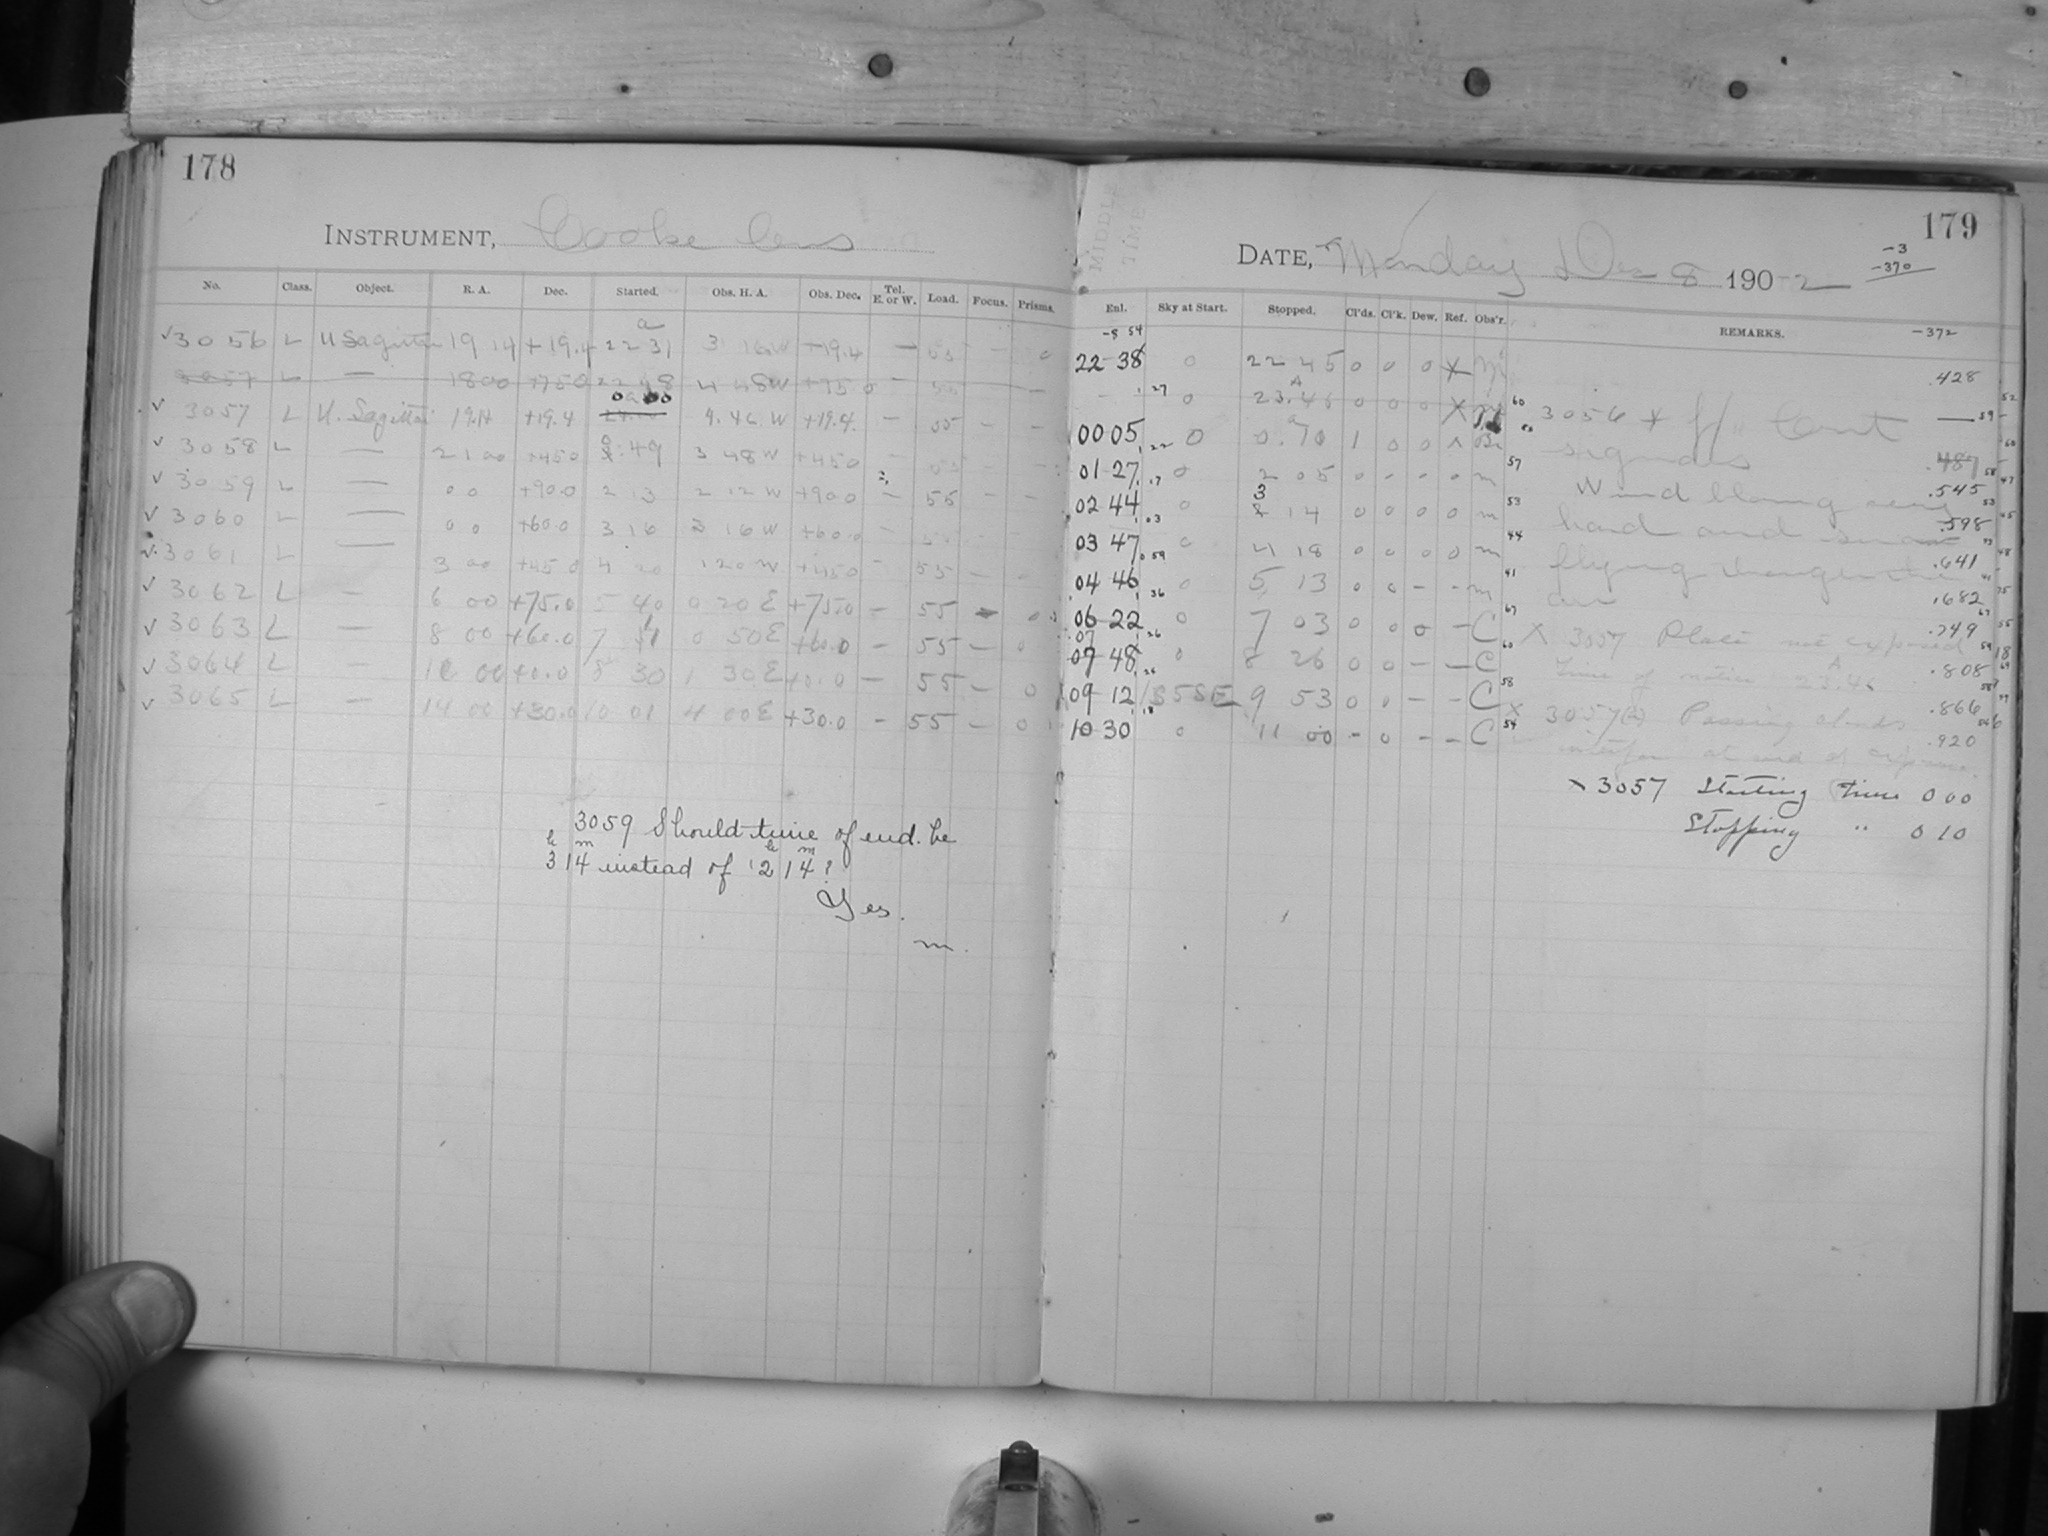 178
INSTRUMENT, Cooke lens
No. Class. Object. R. A. Dec. Started. Obs. H. A. Obs. Dec. Tel. E. or W. Load. Focus. Prisms.
3056 L U Sagittae 19 14 +19.4 22 31 3 16 W +19.4 — 55 — 0
3057 L — 18 00 +75 0 22 48 4 48 W +75 0 — 55 — —
3057 L U. Sagittae 19.14 +19.4 0 00 4.46 W +19.4 — 55 — —
3058 L — 21 00 +45 0 0:49 3 48 W +45 0 — 55
3059 L — 0 0 +90.0 2 13 2 12 W +90 0 — 55 — —
3060 L — 0 0 +60.0 3 16 3 16 W +60.0 —
3061 L — 3 00 +45 0 4 20 1 20 W +45 0 — 55 — 0
3062 L — 6 00 +75.0 5 40 0 20 E +75.0 — 55 — 0
3063 L — 8 00 +60.0 7 11 0 50 E +60.0 — 55 — 0
3064 L — 10 00 +0.0 8 30 1 30 E +0.0 — 55 — 0
3065 L — 14 00 +30.0 10 01 4 00 E +30.0 — 55 — 0
3059 Should time of end be
3h 14m instead of 2h 14m?
Yes.
m.
179
MIDDLE TIME
DATE, Monday Dec 8 1902
-3
-370
-372
Enl. Sky at Start. Stopped. Cl'ds. Cl'k. Dew. Ref. Obs'r. REMARKS.
22 38 0 22 45 0 0 0 X .428
0 23.46 0 0 0 X
00 05 0 0.10 1 0 0
01 27 0 2 05 0 - - 0 m
02 44 0 3 14 0 0 0 0 m
03 47 0 4 18 0 0 0 0 m
04 46 0 5 13 0 0 - - m
06 22 0 7 03 0 0 0 - C
07 48 0 8 26 0 0 — — C
09 12 1S5SE 9 53 0 0 - - C
10 30 0 11 00 - 0 - - C
Wind blowing very
hard and snow
flying through the
air
X 3057 Plate not exposed
Time of notice 23.46
X 3057(2) Passing clouds
interfere at end of exposure.
.487
.545
.598
.641
.682
.749
.808
.866
.920
X 3057 Starting Time 0 00
Stopping " 0 10